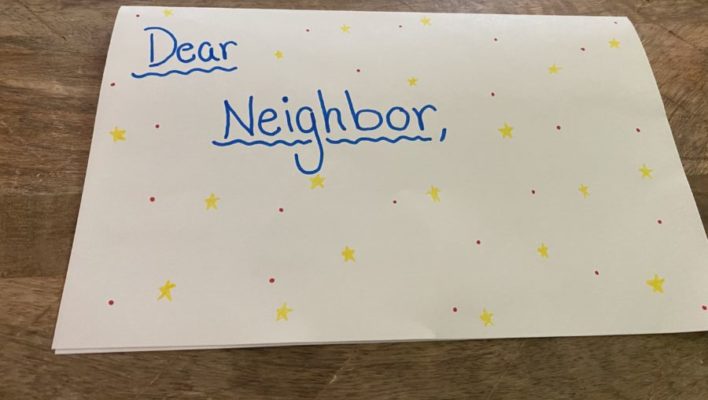 Dear
Neighbor,